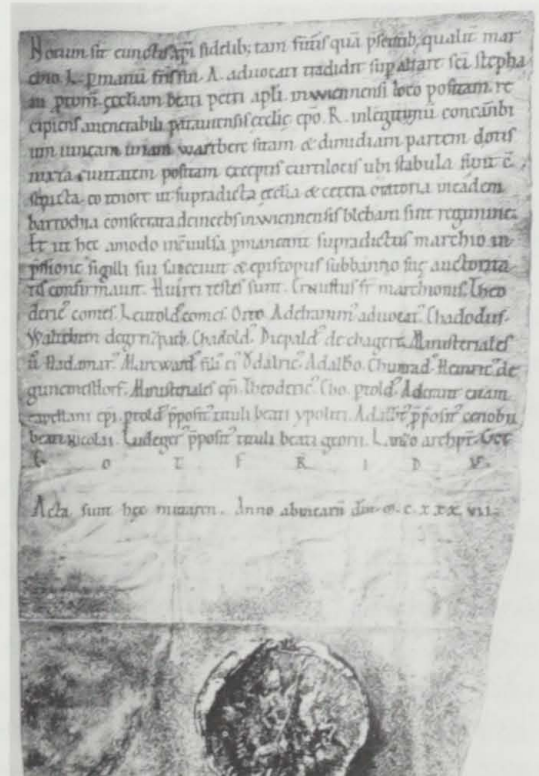 Notum sit cunctis xpi fidelib; tam futuris quā psentib; qualit mar
chio. L. p manū fris sui. A. aduocati tradidit sup altare sci stepha
ni prom̄ eccliam beati petri apli in wiennensi loco positam re
cipiens a uenerabili patauiensis ecclie epo. R. in legitimū concambi
um uineam iuxta wartberc sitam & dimidiam partem dotis
iuxta ciuitatem positam exceptis curtilocis ubi stabula
scripta eo tenore ut supradicta ecclia & cetera oratoria in eadem
barrochia consecrata deinceps in wiennensis blebani sint regimine.
Et ut hec amodo incuulsa pmaneant supradictus marchio in
pssione sigilli sui sanccuit & episcopus sub banno suę auctorita
tis confirmauit. Huius rei testes sunt. Ernustus fr marchionis. Theo
deric comes. Leutold comes. Otto. Adelramm aduocat. Chadold.
Chadold. Diepald de chagere. Ministeriales
ū hadamar. Marcward filī ei Ǒdalric. Adalbo. Chunrad. Heinric de
gunemestorf. Ministeriales epi. Theoderic. Cho. ptold. Aderant etiam
capellani epi. ptold pposit tituli beati ypoliti. Adalbt pposit cenobii
beati nicolai. Ludeger pposit tituli beati georii. archpr. Got
O T F R I D V S.
Acta sunt hęc mutaren. Anno ab incarn̄ dni. m. c. x x x vii.